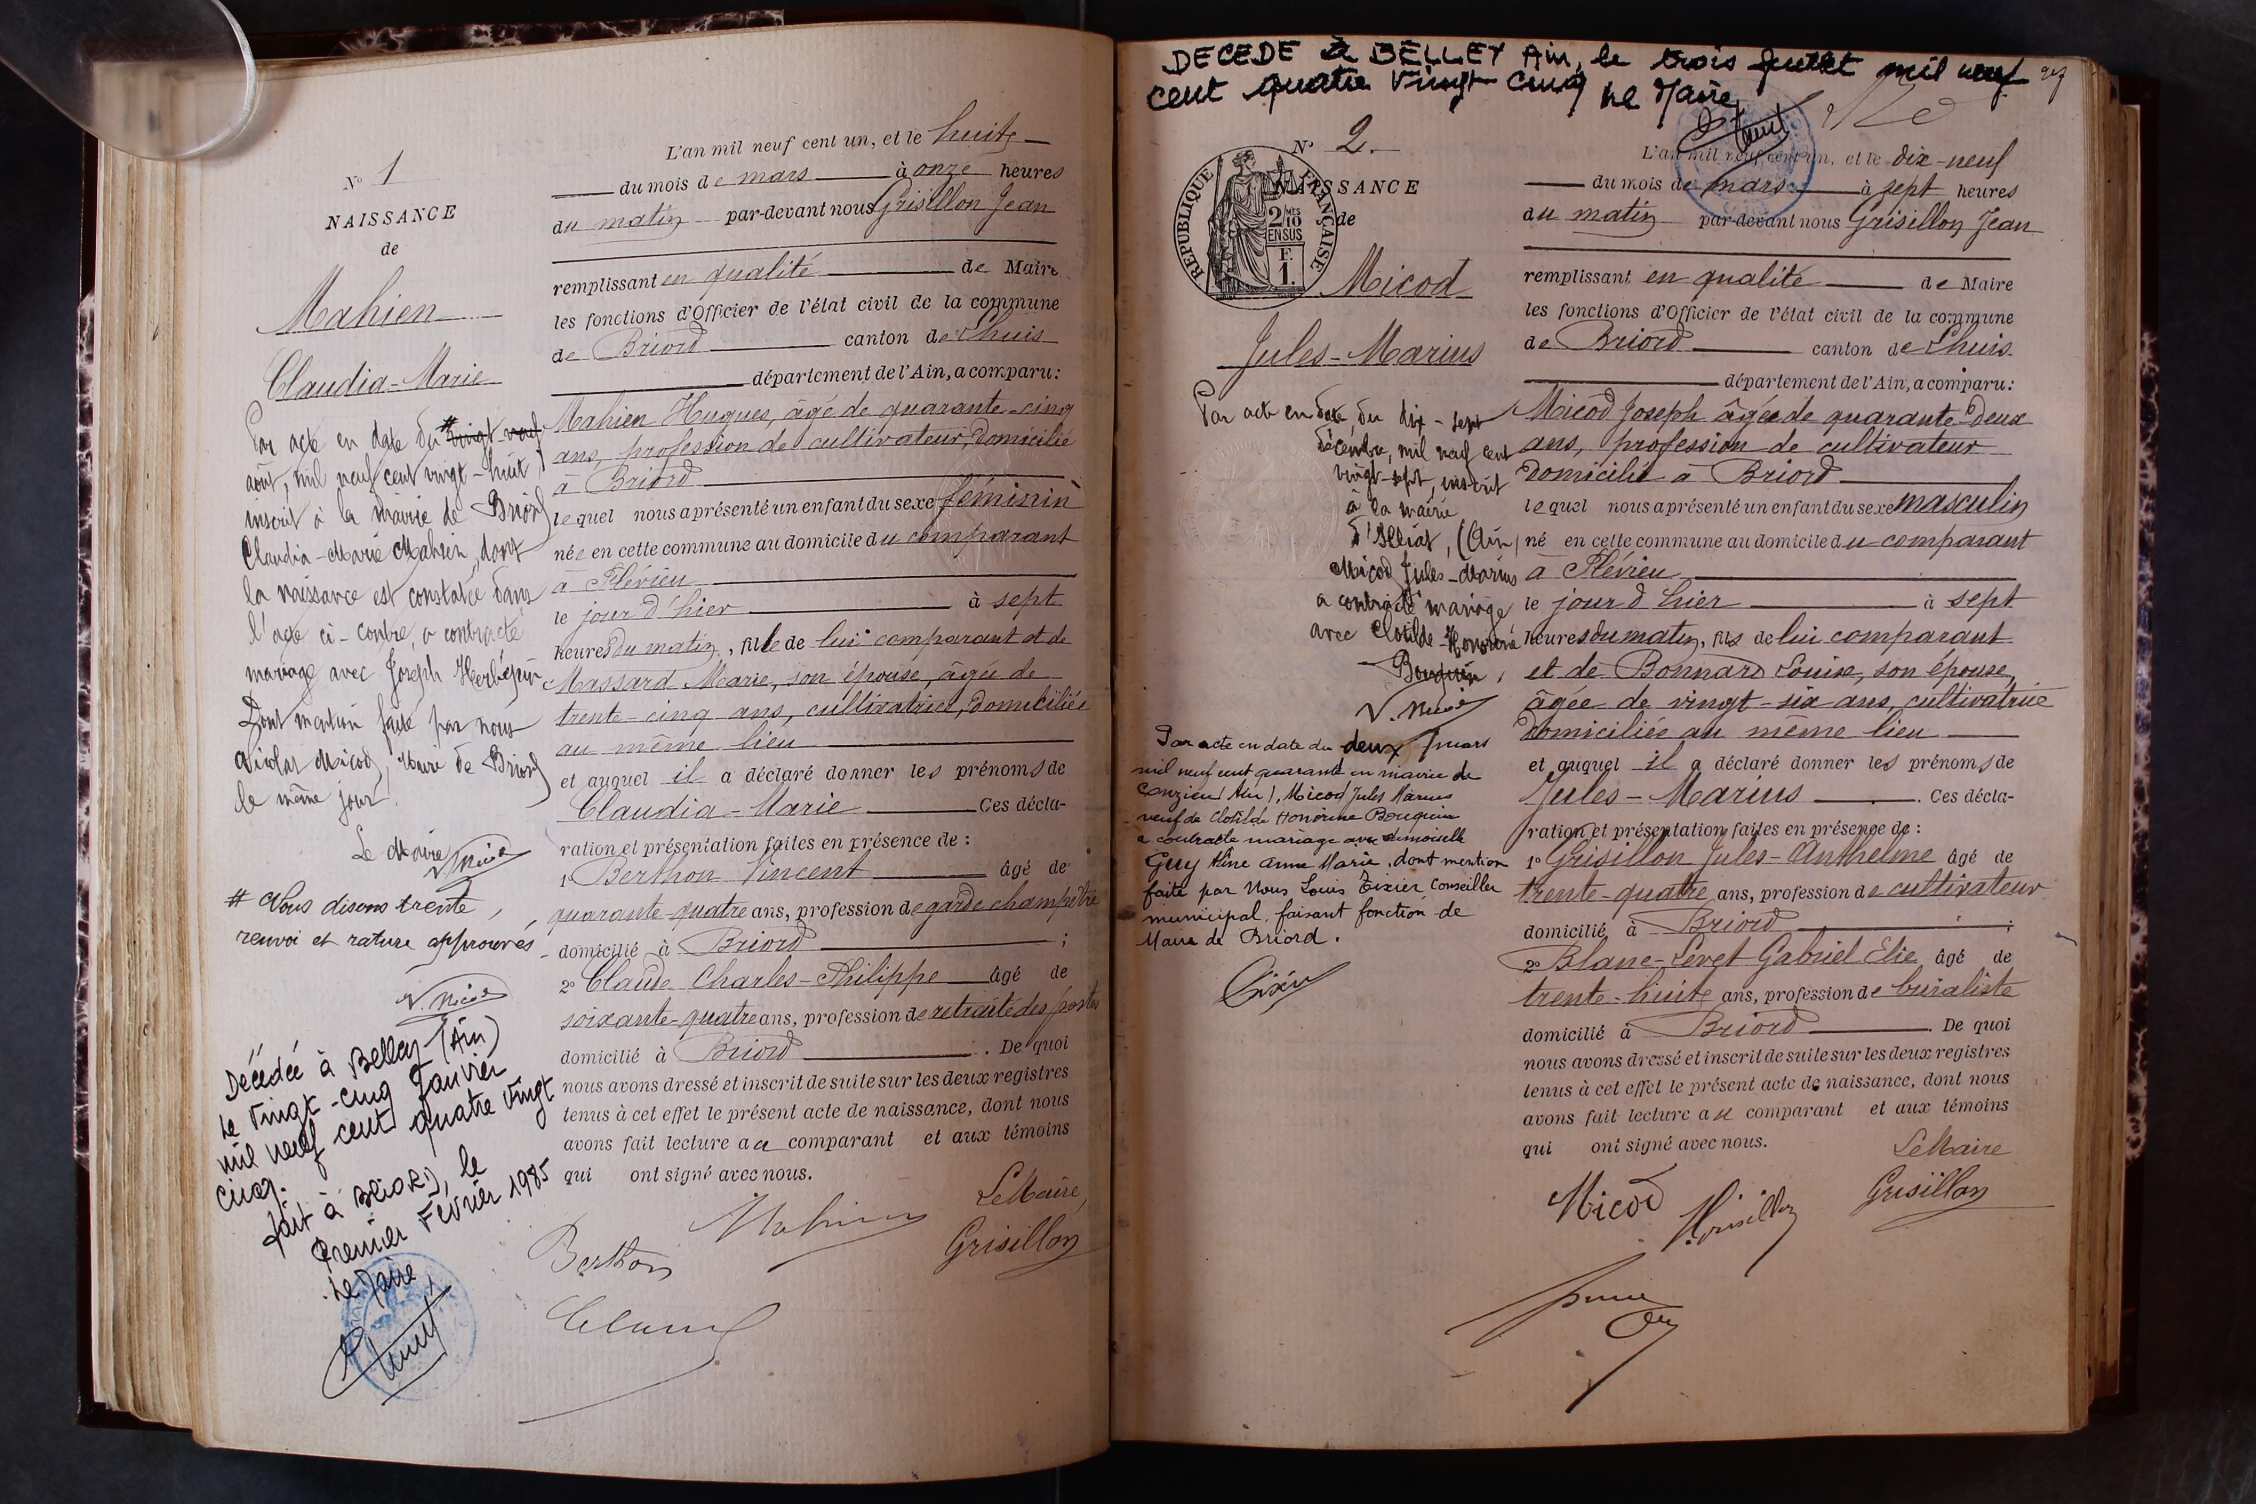 N° 1
NAISSANCE
de
Mahien
Claudia-Marie
Par acte en date du # vingt-neuf
août, mil neuf cent vingt-huit
inscrit à la mairie de Briord
Claudia-Marie Mahien, dont
la naissance est constatée dans
l'acte ci-contre, a contracté
mariage avec Joseph
Dont mention faite par nous
Nicolas Micod, Maire de Briord
le même jour.
Le Maire
V. Micod
# Nous disons trente,
renvoi et rature approuvés
V. Micod
Décédée à Belley (Ain)
le Vingt-cinq Janvier
mil neuf cent quatre Vingt
cinq.
fait à BRIORD, le
Premier Février 1985
Le Maire
L'an mil neuf cent un, et le huit
du mois de mars à onze heures
du matin par-devant nous Grisillon Jean
remplissant en qualité de Maire
les fonctions d'Officier de l'état civil de la commune
de Briord canton de Lhuis
département de l'Ain, a comparu:
Mahien Hugues, âgé de quarante-cinq
ans, profession de cultivateur, domicilié
à Briord
lequel nous a présenté un enfant du sexe féminin
née en cette commune au domicile du comparant
à Flévieu
le jour d'hier à sept
heures du matin, fille de lui comparant et de
Massard Marie, son épouse, âgée de
trente-cinq ans, cultivatrice, domiciliée
au même lieu
et auquel il a déclaré donner les prénoms de
Claudia-Marie Ces décla-
ration et présentation faites en présence de :
1° Berthon Vincent âgé de
quarante-quatre ans, profession de garde champêtre
domicilié à Briord ;
2° Claude Charles-Philippe âgé de
soixante-quatre ans, profession de retraité des postes
domicilié à Briord . De quoi
nous avons dressé et inscrit de suite sur les deux registres
tenus à cet effet le présent acte de naissance, dont nous
avons fait lecture au comparant et aux témoins
qui ont signé avec nous.
Le Maire,
Mahien
Berthon
Grisillon
Claude
DECEDE à BELLEY Ain, le trois Juillet mil neuf
cent quatre Vingt cinq Le Maire
N° 2
NAISSANCE
de
REPUBLIQUE FRANÇAISE
2 MES
10
EN SUS
F.
1.
Micod
Jules-Marius
Par acte en date du dix-sept
décembre, mil neuf cent
vingt-sept, inscrit
à la mairie
d'Illiat, (Ain)
Micod Jules-Marius
a contracté mariage
avec Clotilde-Honorine
Bouquin.
V. Micod
Par acte en date du deux mars
mil neuf cent quarante en mairie de
Conzieu (Ain), Micod Jules Marius
veuf de Clotilde Honorine Bouquin
a contracté mariage avec demoiselle
Guy Aline Anna Marie, dont mention
faite par Nous Louis Tixier Conseiller
municipal faisant fonction de
Maire de Briord.
Tixier
L'an mil neuf cent un, et le dix-neuf
du mois de mars à sept heures
du matin par-devant nous Grisillon Jean
remplissant en qualité de Maire
les fonctions d'Officier de l'état civil de la commune
de Briord canton de Lhuis
département de l'Ain, a comparu:
Micod Joseph âgé de quarante-deux
ans, profession de cultivateur
domicilié à Briord
lequel nous a présenté un enfant du sexe masculin
né en cette commune au domicile du comparant
à Flévieu
le jour d'hier à sept
heures du matin, fils de lui comparant
et de Bonnard Louise, son épouse,
âgée de vingt-six ans, cultivatrice
domiciliée au même lieu
et auquel il a déclaré donner les prénoms de
Jules-Marius . Ces décla-
ration et présentation faites en présence de :
1° Grisillon Jules-Anthelme âgé de
trente-quatre ans, profession de cultivateur
domicilié à Briord ;
2° Blanc-Levet Gabriel Elie âgé de
trente-huit ans, profession de buraliste
domicilié à Briord . De quoi
nous avons dressé et inscrit de suite sur les deux registres
tenus à cet effet le présent acte de naissance, dont nous
avons fait lecture au comparant et aux témoins
qui ont signé avec nous.
Le Maire
Micod Grisillon Grisillon